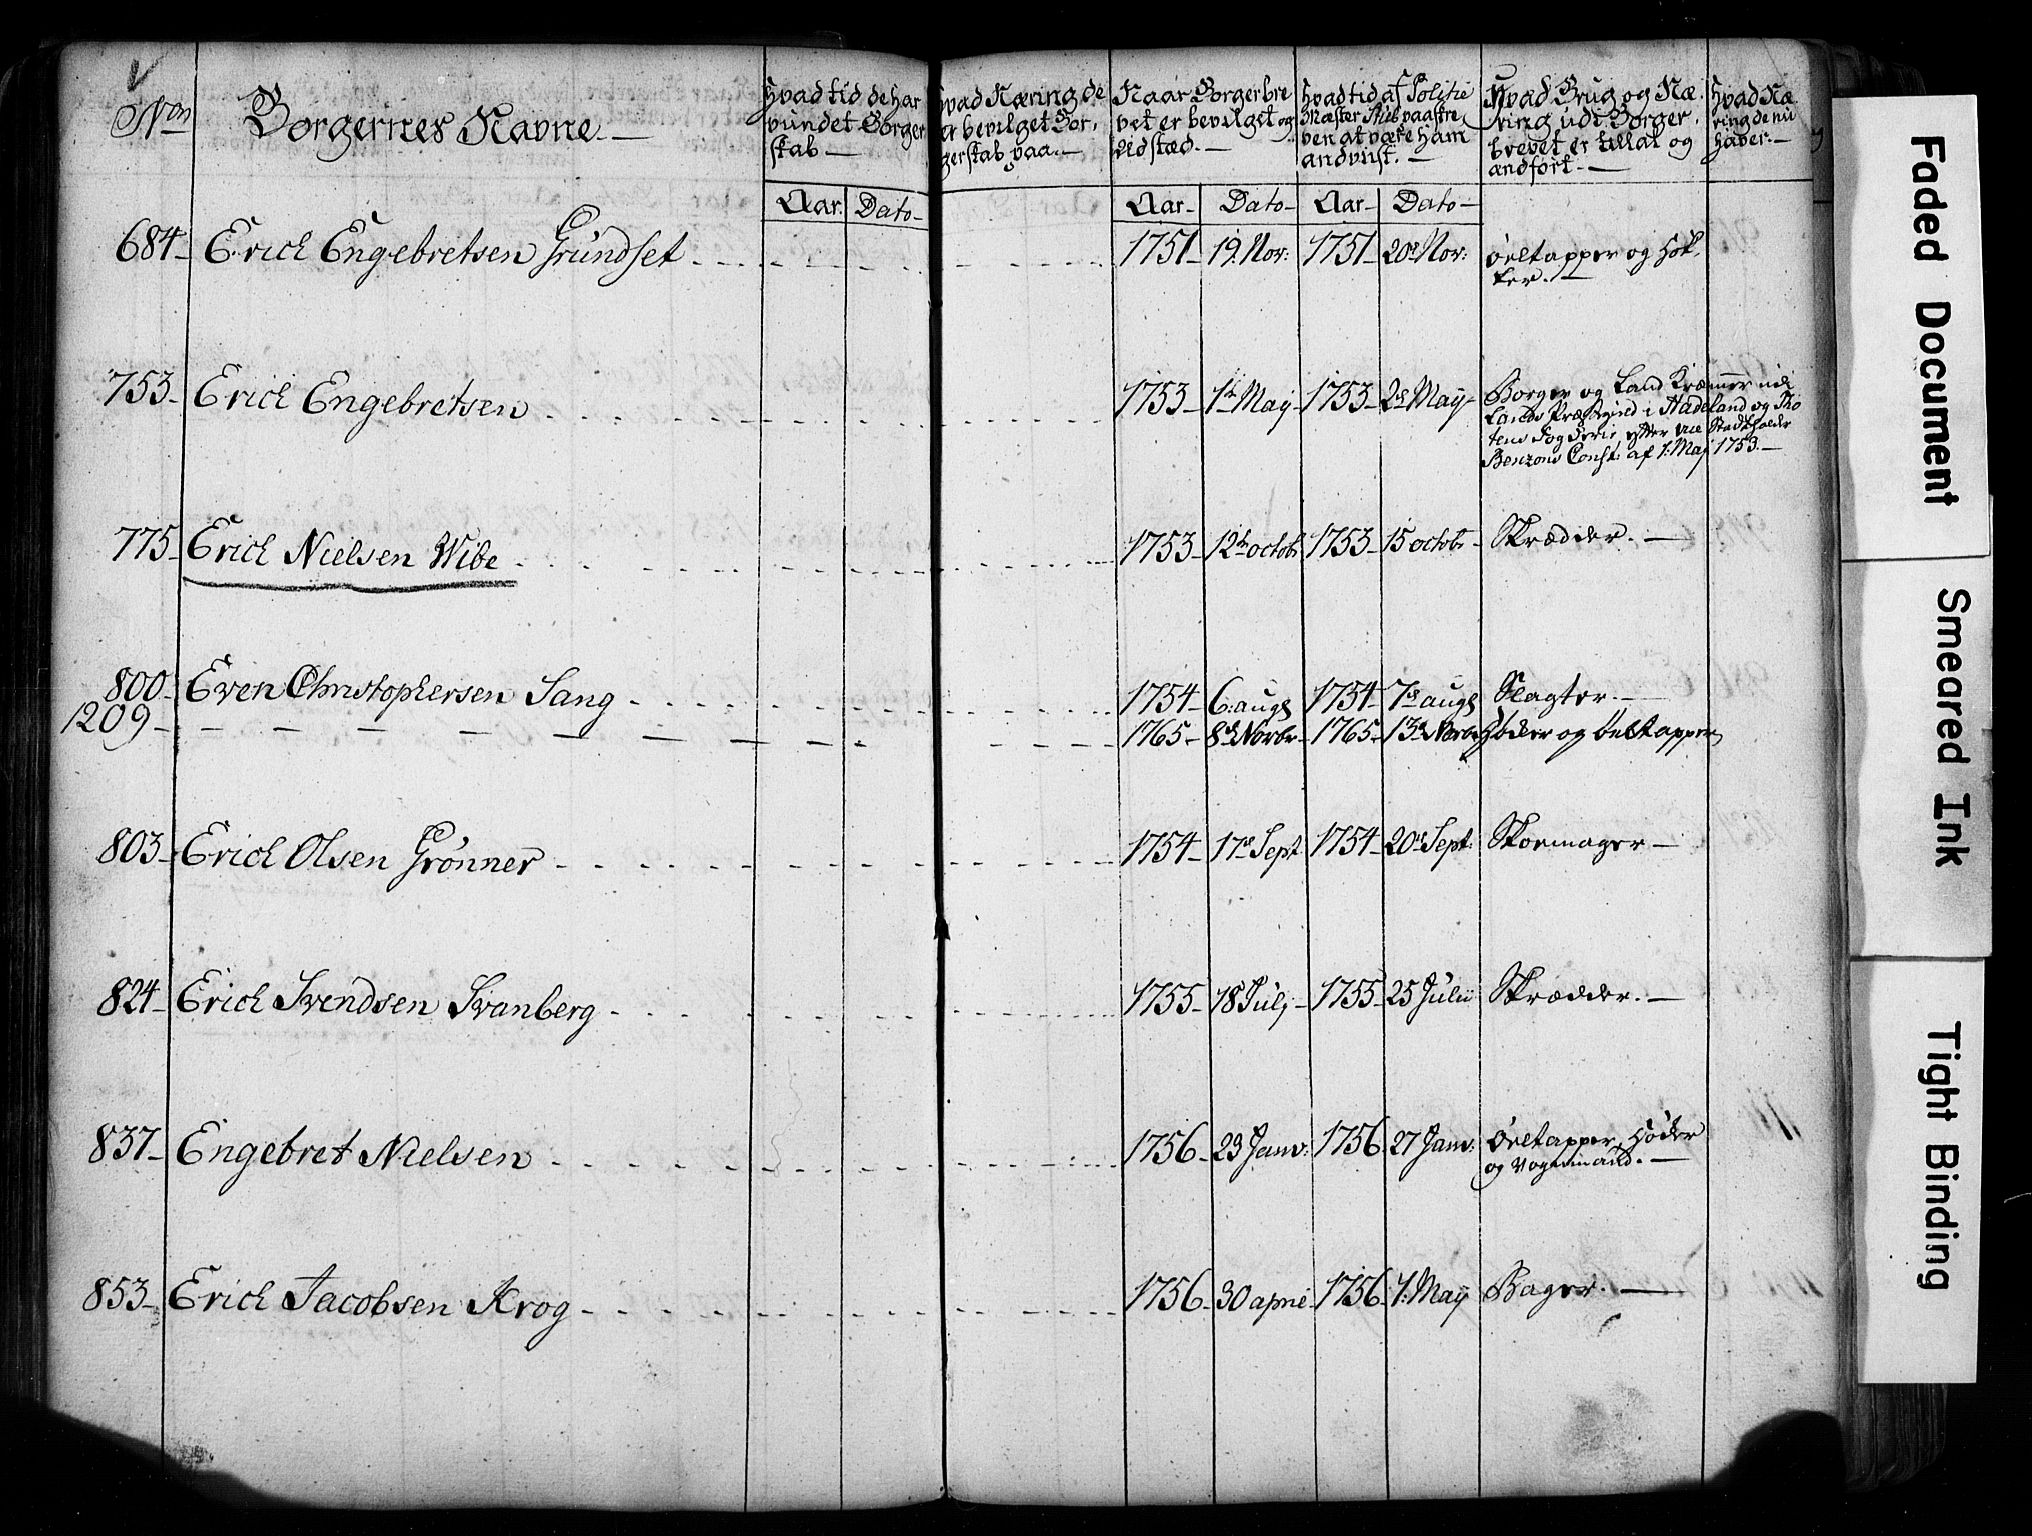 Non
Borgernes Navne. —
Hvad tid de har
vundet Borger
skab —
Aar. Dato.
Hvad Næring de
har bevilget Bor,
gerskab paa. —
Naar Borgerbre
vet er bevilget og
udstæd. —
Aar— Dato—
Hvad tid af Politie
Mæster Stub paaskre,
ven at være ham
andvist. —
Aar— Dato—
Hvad Brug og Næ,
ring udi Borger,
brevet er tillat og
andfört. —
Hvad Næ
ring de nu
haver. —
684— Erich Engebretsen Grundset 1751— 19. Nov: 1751— 20de Nov: øeltapper og Hök,
ker. —
753— Erich Engebretsen 1753— 1te May 1753— 2de May— Borger og Land Kræmmer udi
Lands Præstegield i Hadeland og Tho
tens Fogderie, efter vice Stadtholder
Benzons Const: af 1: Maj 1753. —
775— Erich Nielsen Wibe 1753— 12te octob: 1753— 15 octob: Skrædder. —
800— Even Christophersen Sang 1754— 6: augs 1754— 7de augs Slagter. —
1209— 1765— 8de Novbr— 1765— 13de Novbr Høker og øeltapper
803— Erich Olsen Grönner 1754— 17de Sept 1754— 20de Sept: Skoemager—
824— Erich Svendsen Svanberg 1755— 18 Julj— 1755— 25 Julii Skrædder. —
837— Engebret Nielsen 1756— 23 Janv: 1756— 27 Janv: Øeltapper, Høcker
og Vognmand. —
853— Erich Jacobsen Krog 1756— 30 april 1756— 1: May Bager. —
Faded Document
Smeared Ink
Tight Binding